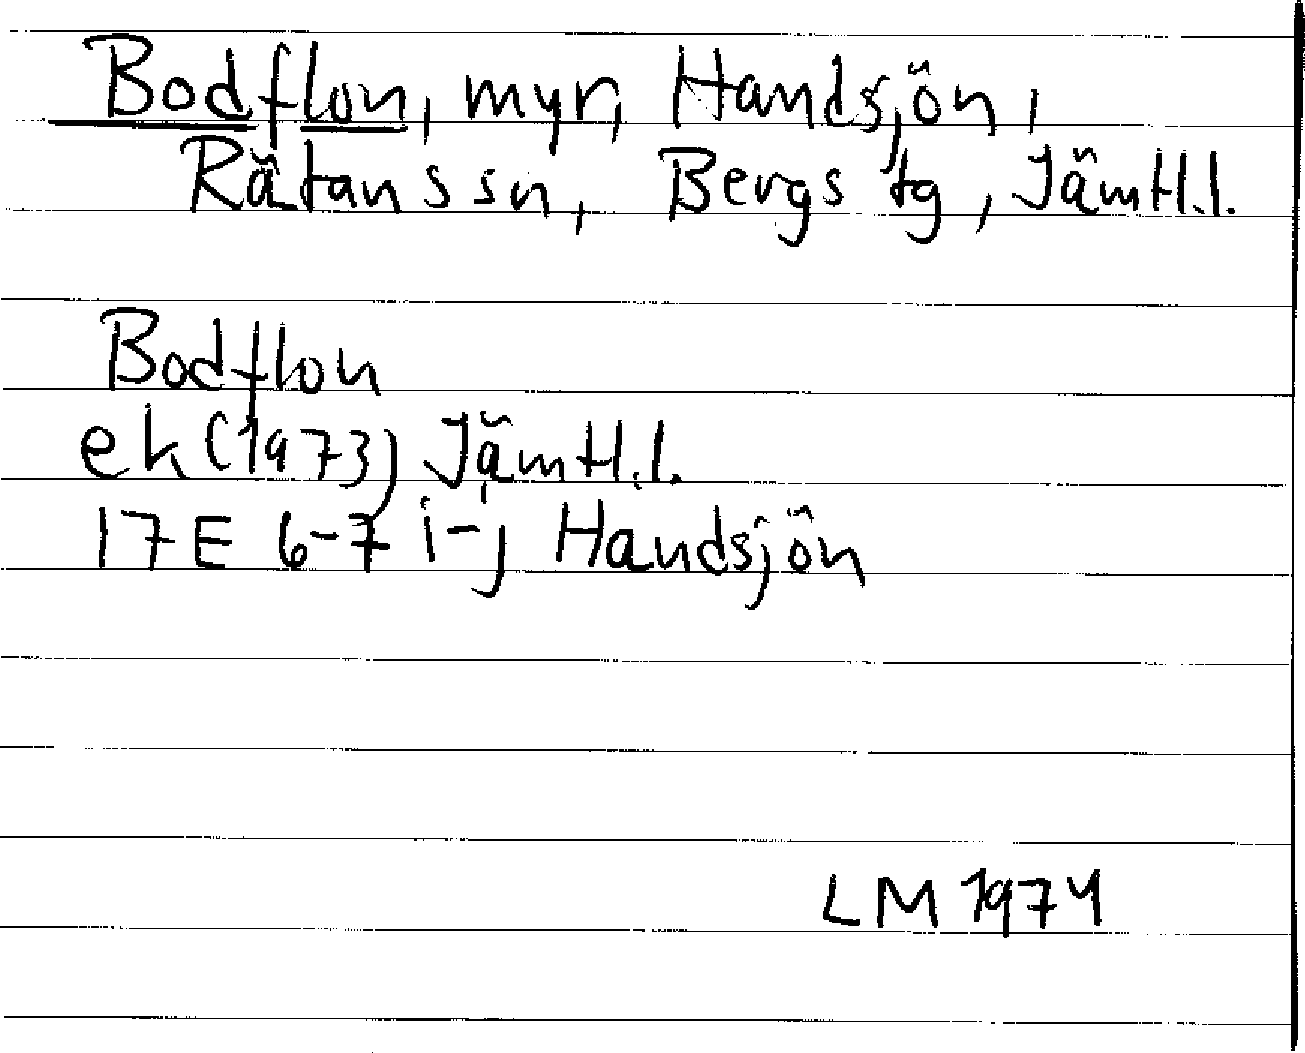 Bodflon, myr, Handsjön,
Rätans sn, Bergs tg, Jämtl.l.
Bodflon
ek (1973) Jämtl.l.
17E 6-7 i-j Handsjön
LM 1974